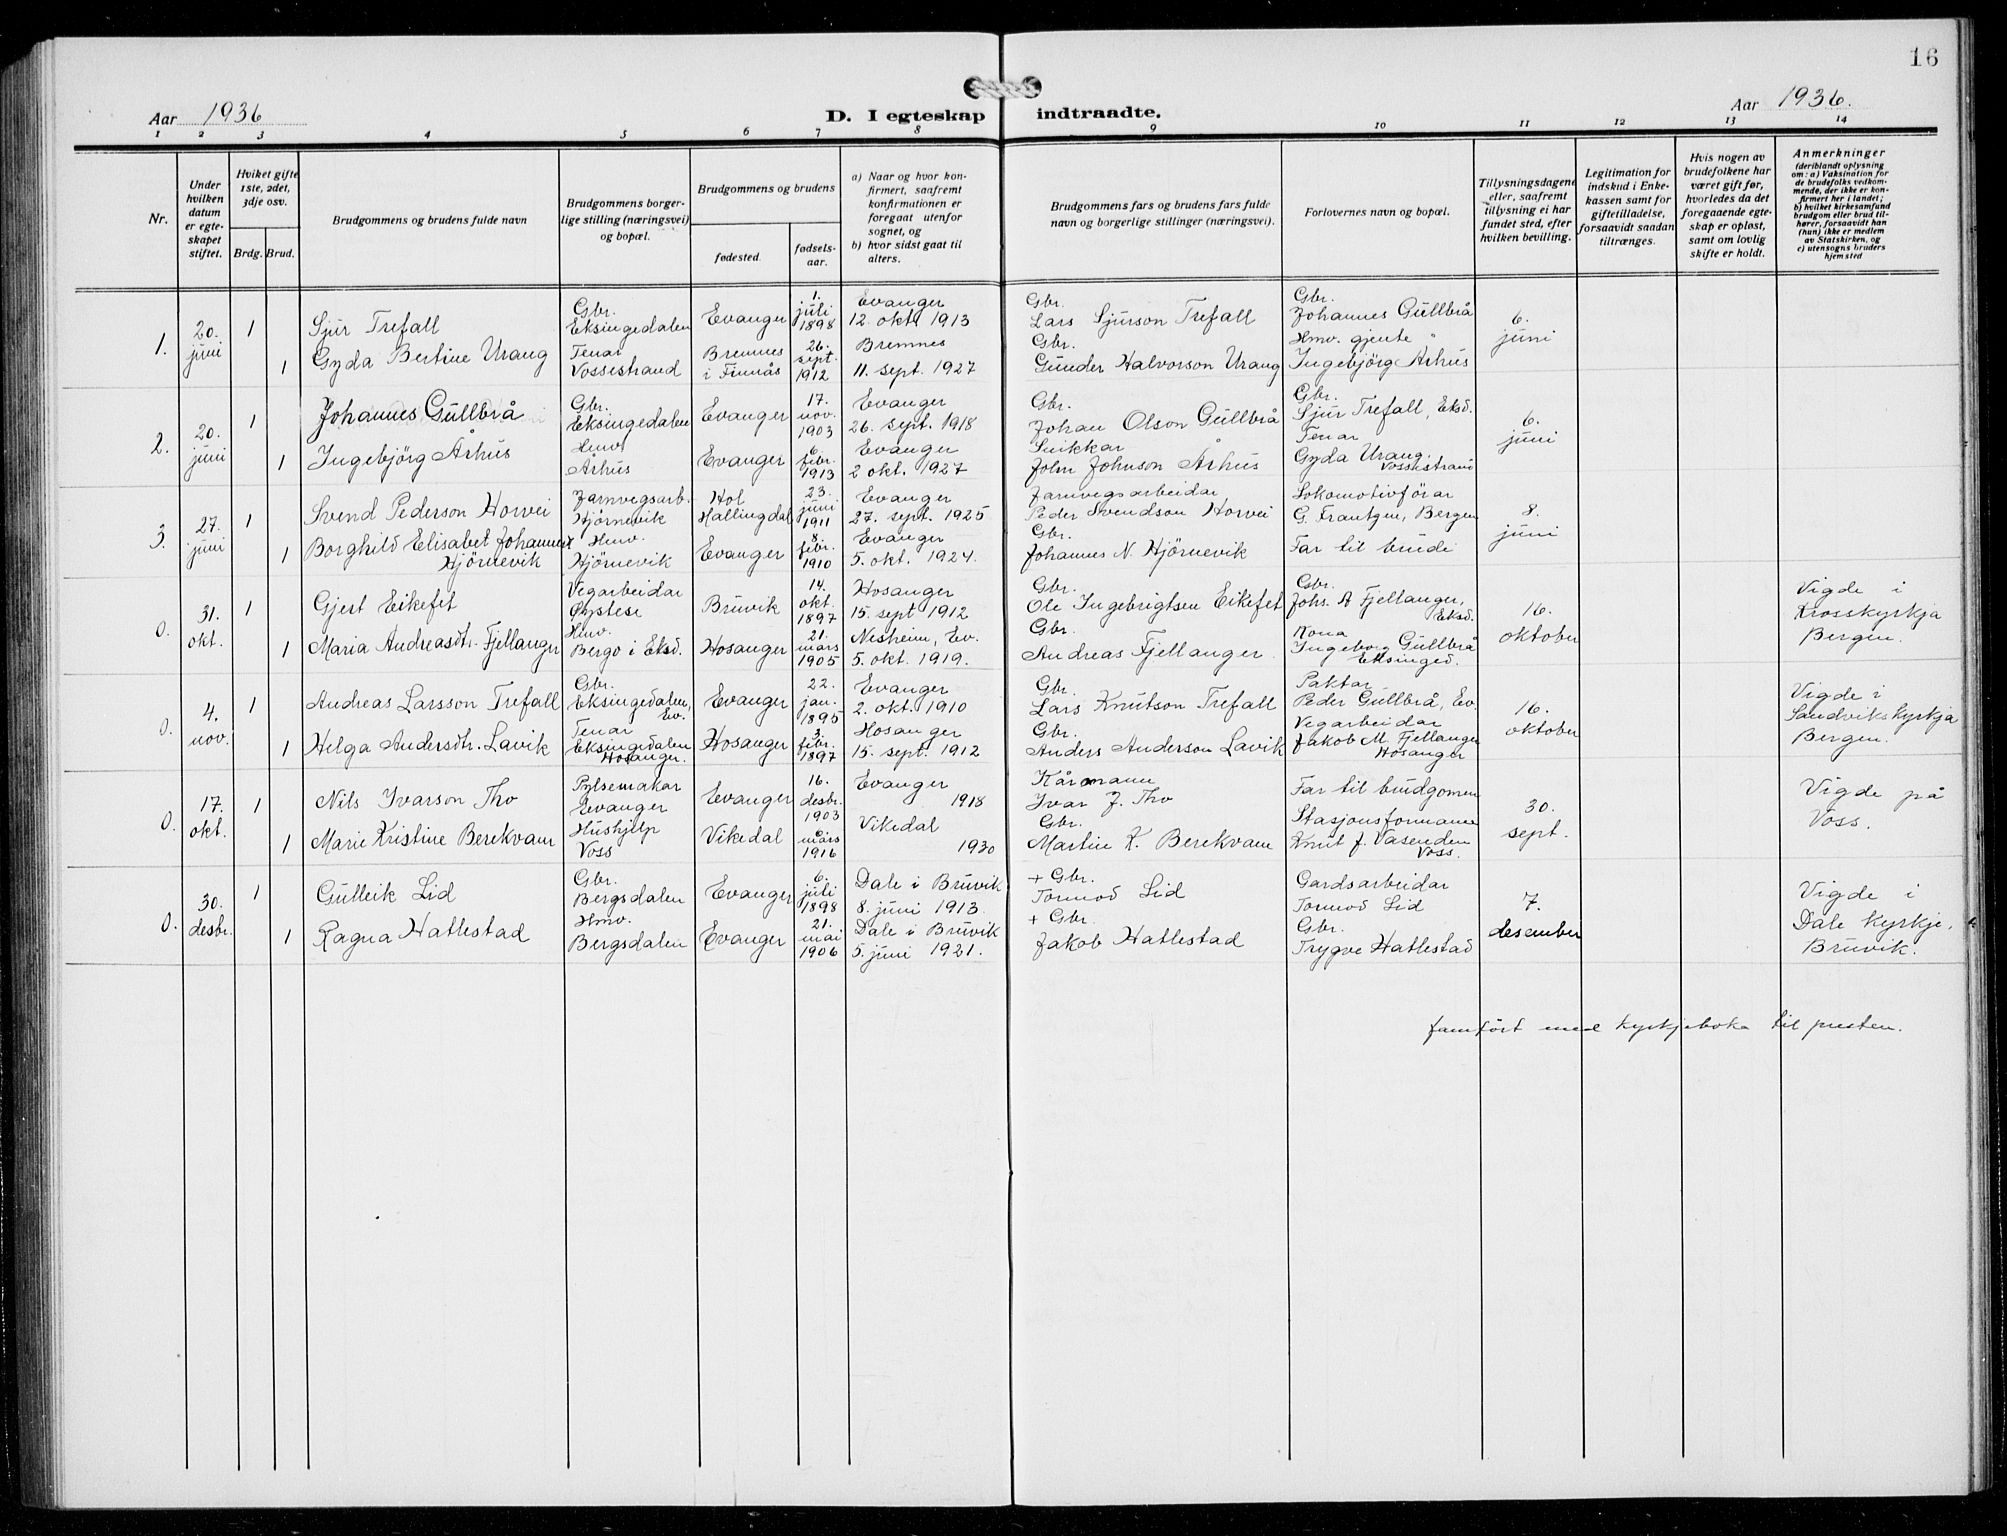 16
Aar 1936
D. I egteskap indtraadte.
Aar 1936.
1 2 3 4 5 6 7 8 9 10 11 12 13 14
Nr.
Under hvilken datum er egte-skapet stiftet.
Hviket gifte 1ste, 2det, 3dje osv.
Brdg. Brud.
Brudgommens og brudens fulde navn
Brudgommens borger-lige stilling (næringsvei) og bopæl.
Brudgommens og brudens
fødested.
fødsels-aar.
a) Naar og hvor kon-firmert, saafremt konfirmationen er foregaat utenfor sognet, og
b) hvor sidst gaat til alters.
Brudgommens fars og brudens fars fulde navn og borgerlige stillinger (næringsvei).
Forlovernes navn og bopæl.
Tillysningsdagene eller, saafremt tillysning ei har fundet sted, efter hvilken bevilling.
Legitimation for indskud i Enke-kassen samt for giftetilladelse, forsaavidt saadan tiltrænges.
Hvis nogen av brudefolkene har været gift før, hvorledes da det foregaaende egte-skap er opløst, samt om lovlig skifte er holdt.
Anmerkninger
(deriblandt oplysning om: a) Vaksination for de brudefolks vedkom-mende, der ikke er kon-firmert her i landet; b) hvilket kirkesamfund brudgom eller brud til-hører, forsaavidt han (hun) ikke er medlem av Statskirken, og c) utensogns bruders hjemsted
1. 20. juni 1 Sjur Trefall Gbr. Eksingedalen Evanger 1. juli 1898 Evanger 12. okt. 1913 Gbr. Lars Sjurson Trefall Gbr. Johannes Gullbrå 6. juni
1 Gyda Bertine Urang Tenar Vossestrand Bremnes i Finnås 26. sept. 1912 Bremnes 11. sept. 1927 Gbr. Gunder Halvorson Urang Hmv. gjente " Ingebjörg Århus
2. 20. juni 1 Johannes Gullbrå Gbr. Eksingedalen Evanger 17. nov. 1903 Evanger 26. sept. 1918 Gbr. Johan Olson Gullbrå Gbr. Sjur Trefall, Eksd. 6. juni
1 Ingebjörg Århus Hmv. Århus Evanger 6. febr. 1913 Evanger 2 okt. 1927 Snikkar John Johnson Århus Tenar Gyda Urang, Vossestrand
3. 27. juni 1 Svend Pederson Horvei Jarnvegsarb. Hjörnevik Hol Hallingdal 23. juni 1911 Evanger 27. sept. 1925 Jarnvegsarbeidar Peder Svendson Horvei Lokomotivförar G. Frantzen, Bergen 8. juni
1 Borghild Elisabet Johannesd. Hjörnevik Hmv. Hjörnevik Evanger 8. febr. 1910 Evanger 5. okt. 1924. Gbr. Johannes N. Hjörnevik Far til brudi
0. 31. okt. 1 Gjert Eikefet Vegarbeidar Øystese Bruvik 14. okt. 1897 Hosanger 15. sept 1912 Gbr. Ole Ingebrigtsen Eikefet Gbr. Johs. A Fjellanger, Eksd. 16. oktober Vigde i Krosskyrkja Bergen.
1 Maria Andreasdtr. Fjellanger Hmv. Bergo i Eksd. Hosanger 21. mars 1905 Nesheim, Ev. 5. okt. 1919. Gbr. Andreas Fjellanger Kona Ingeborg Gullbrå Eksinged.
0. 4. nov. 1 Andreas Larsson Trefall Gbr. Eksingedalen, Ev. Evanger 22. jan. 1895 Evanger 2. okt. 1910 Gbr. Lars Knutson Trefall Paktar Peder Gullbrå, Ev. 16. oktober Vigde i Sandvikskyrkja Bergen.
1 Helga Andersdtr. Lavik Tenar Eksingedalen Hosanger. Hosanger 3. febr. 1897 Hosanger 15. sept. 1912 Gbr. Anders Anderson Lavik Vegarbeidar Jakob M. Fjellanger Hosanger
0. 17. okt. 1 Nils Ivarson Tho Pylsemakar Evanger Evanger 16. desbr. 1903 Evanger 1918 Kårmann Ivar J. Tho Far til brudgomen 30. sept. Vigde på Voss.
1 Marie Kristine Berekvam Hushjelp Voss Vikedal 6. mars 1916 Vikedal 1930 Gbr. Martin K. Berekvam Stasjonsformann Knut J. Vasenden Voss.
0. 30. desbr. 1 Gulleik Lid Gbr. Bergsdalen Evanger 6. juli 1898 Dale i Bruvik 8. juni 1913. + Gbr. Tormod Lid Gardsarbeidar Tormod Lid 7. desember Vigde i Dale kyrkje, Bruvik.
1 Ragna Hatlestad Hmv. Bergsdalen Evanger 21. mai 1906 Dale i Bruvik 5. juni 1921. + Gbr. Jakob Hatlestad Gbr. Trygve Hatlestad
Jamfört med kyrkjeboka til presten.